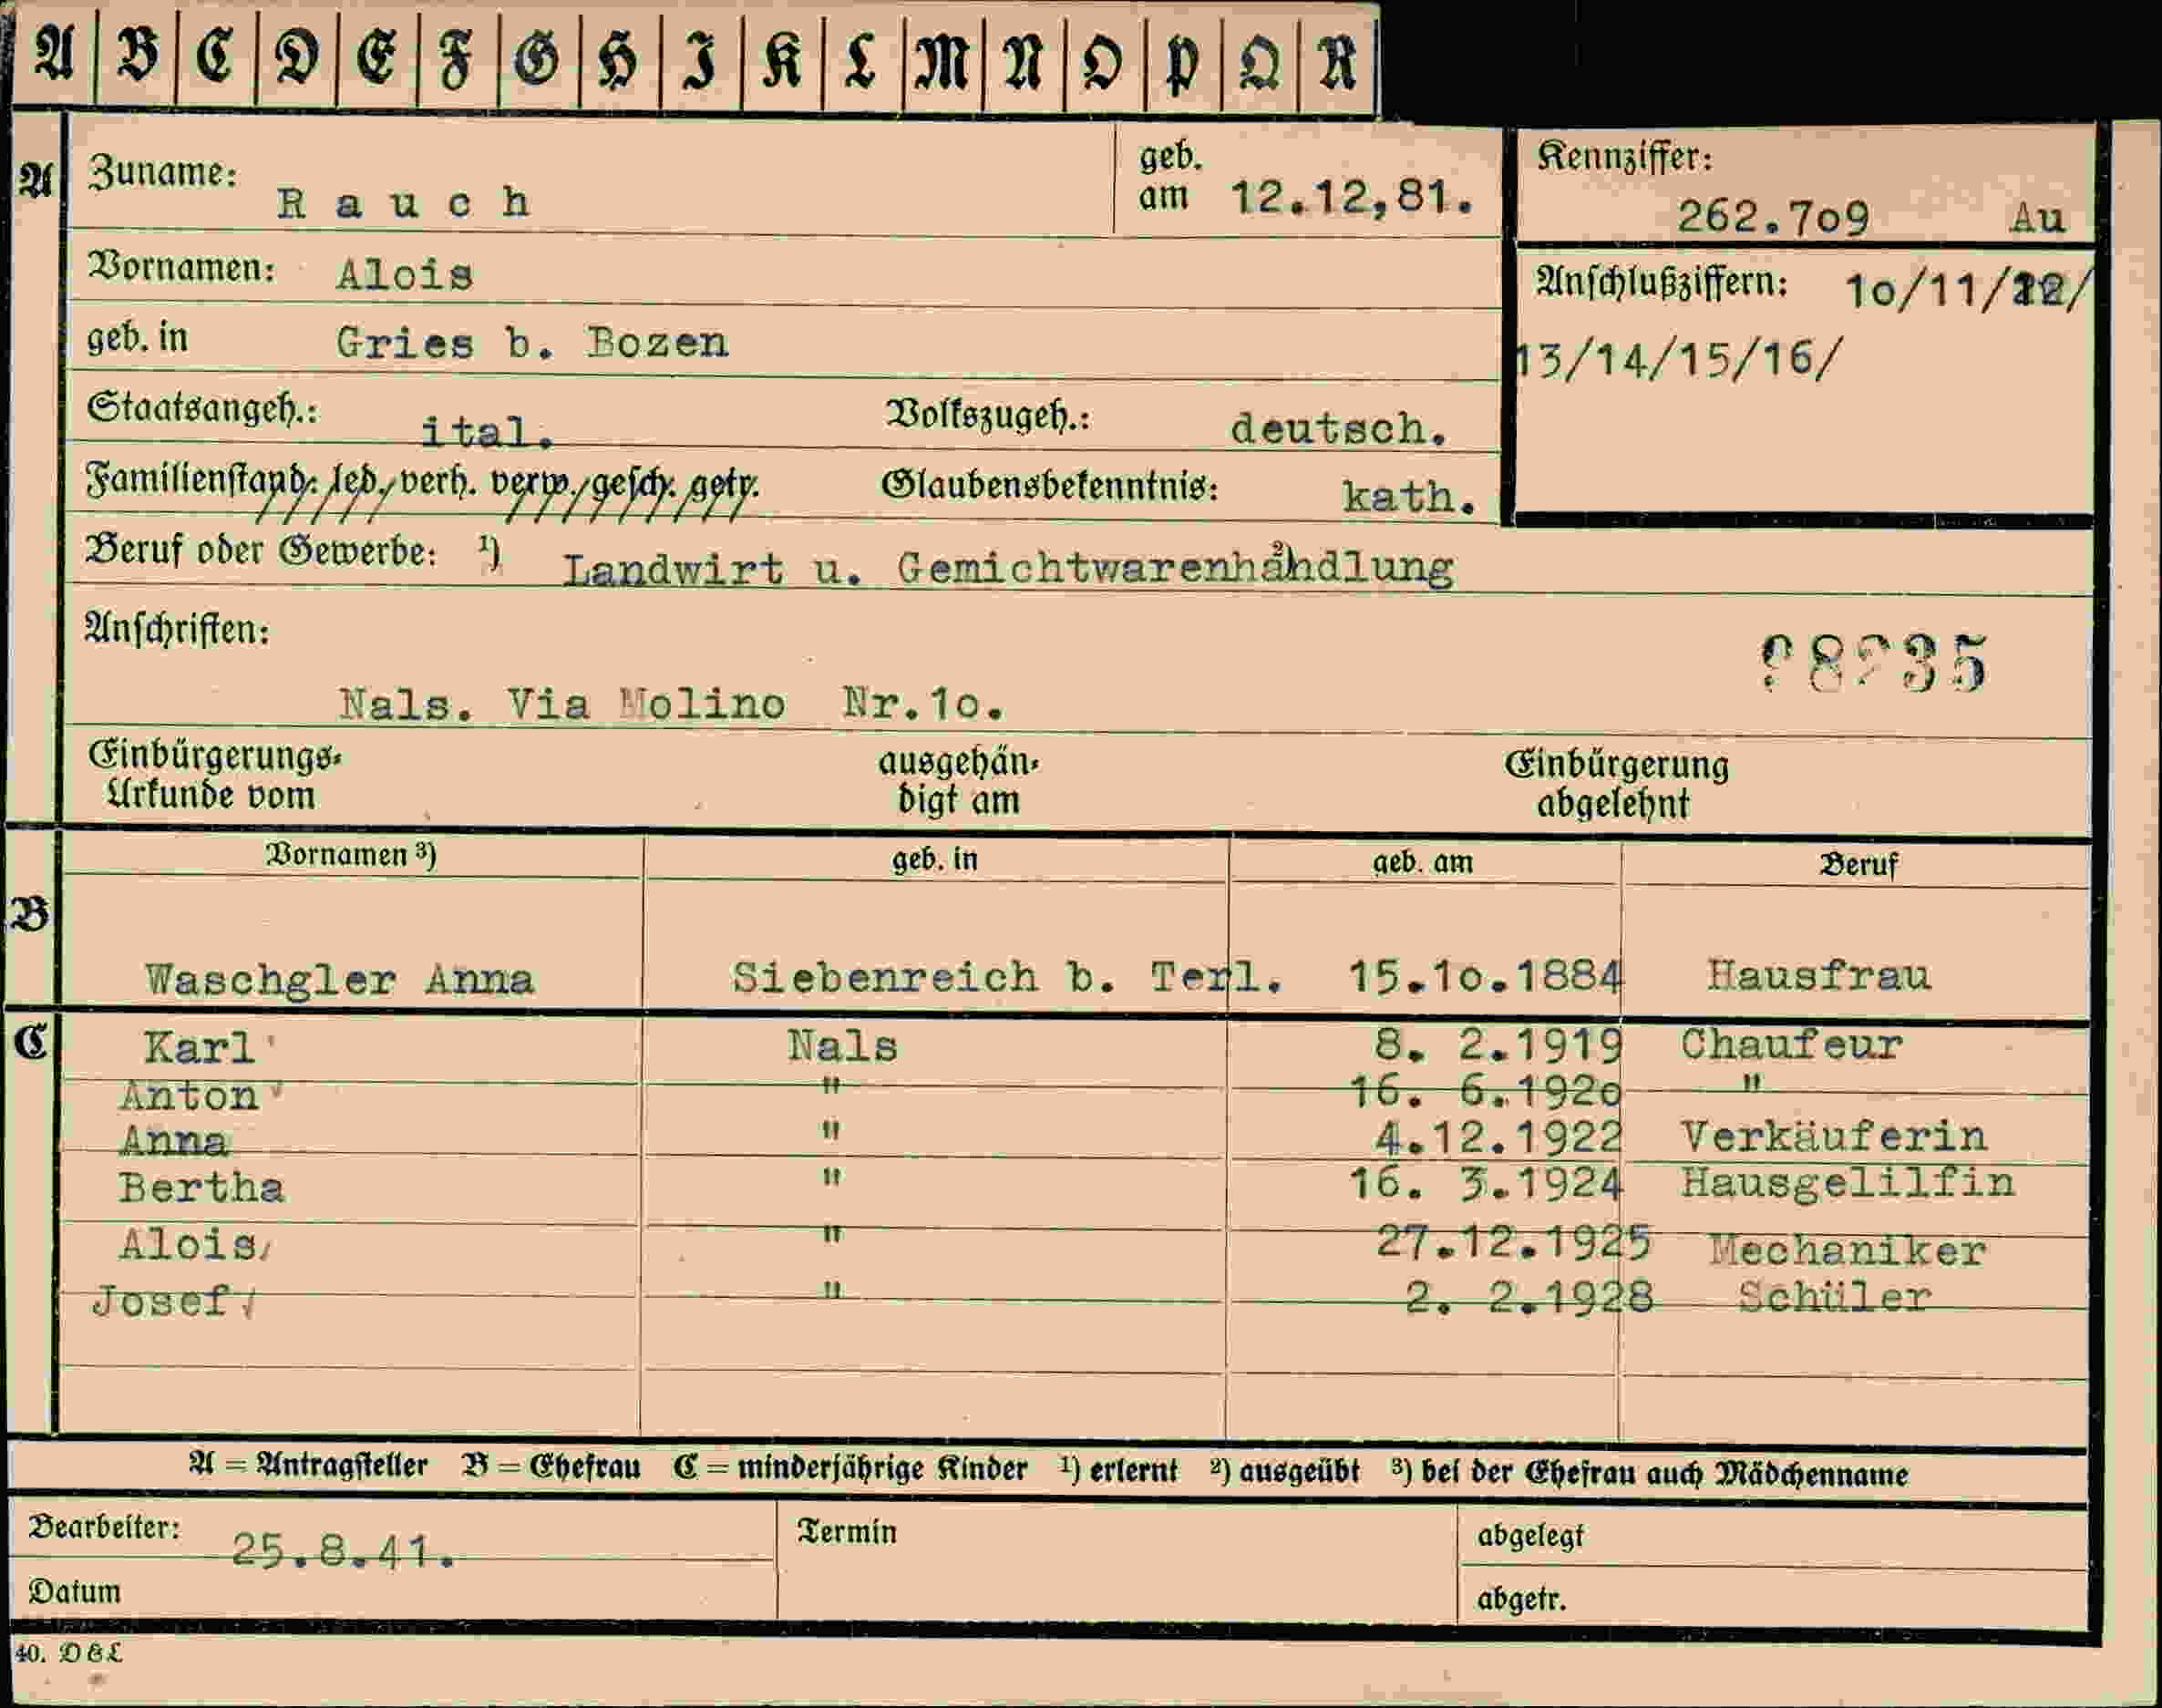 A B C D E F G H I K L M N O P Q R
A Zuname: Rauch geb. am 12.12,81. Kennziffer: 262.7o9 Au
Vornamen: Alois Anschlußziffern: 1o/11/12/
13/14/15/16/
geb. in Gries b. Bozen
Staatsangeh.: ital. Volkszugeh.: deutsch.
Familienstand: led. verh. verw. gesch. getr. Glaubensbekenntnis: kath.
Beruf oder Gewerbe: 1) Landwirt u. Gemichtwarenhandlung 2)
Anschriften:
835
Nals. Via Molino Nr.1o.
Einbürgerungs- ausgehän- Einbürgerung
Urkunde vom digt am abgelehnt
Vornamen 3) geb. in geb. am Beruf
B
Waschgler Anna Siebenreich b. Terl. 15.1o.1884 Hausfrau
C Karl Nals 8. 2.1919 Chaufeur
Anton " 16. 6.192o "
Anna " 4.12.1922 Verkäuferin
Bertha " 16. 3.1924 Hausgelilfin
Alois " 27.12.1925 Mechaniker
Josef " 2. 2.1928 Schüler
A = Antragsteller B = Ehefrau C = minderjährige Kinder 1) erlernt 2) ausgeübt 3) bei der Ehefrau auch Mädchenname
Bearbeiter: 25.8.41. Termin abgelegt
Datum abgetr.
40. D & L